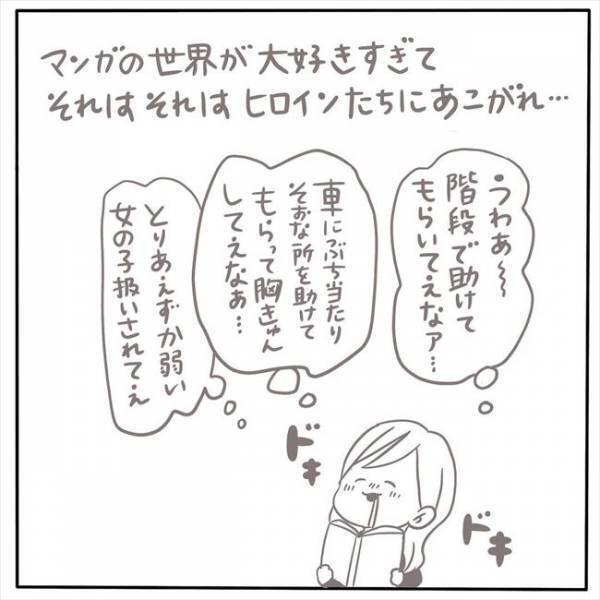 マンガの世界が大好きすぎて
それはそれはヒロインたちにあこがれ…
うわぁ〜〜
階段で助けて
もらいてえなァ…
車にぶち当たり
そおな所を助けて
もらって胸きゅん
してえなぁ…
とりあえずか弱い
女の子扱いされてえ
ドキ
ドキ